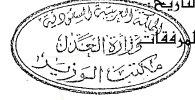 التاريخ:
المرفقات
المملكة العربية السعودية
وزارة العدل
مكتب الوزير